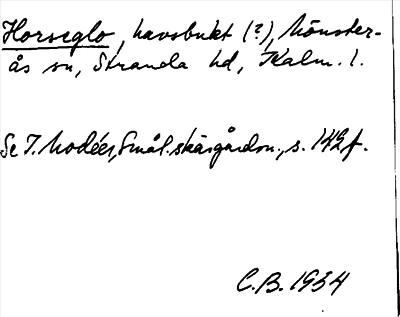 Horseglo, havsbukt (?), Mönster-
ås sn, Stranda hd, Kalm. l.
Se I. Modéer, Smål. skärgårdsn., s. 142 f.
C.B. 1934